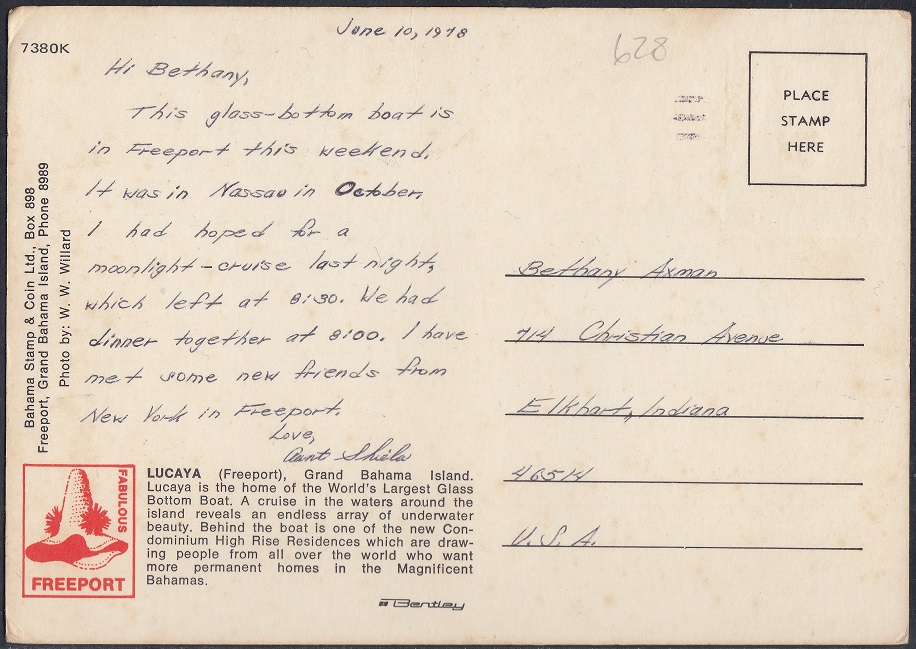 7380K
June 10, 1978
628
Hi Bethany,
This glass-bottom boat is
in Freeport this weekend.
It was in Nassau in October.
I had hoped for a
moonlight-cruise last night,
which left at 8:30. We had
dinner together at 8:00. I have
met some new friends from
New York in Freeport.
Love,
Aunt Shiela
Bahama Stamp & Coin Ltd., Box 898
Freeport, Grand Bahama Island, Phone 8989
Photo by: W. W. Willard
FABULOUS
FREEPORT
LUCAYA (Freeport), Grand Bahama Island.
Lucaya is the home of the World's Largest Glass
Bottom Boat. A cruise in the waters around the
island reveals an endless array of underwater
beauty. Behind the boat is one of the new Con-
dominium High Rise Residences which are draw-
ing people from all over the world who want
more permanent homes in the Magnificent
Bahamas.
Bentley
PLACE
STAMP
HERE
Bethany Axman
714 Christian Avenue
Elkhart, Indiana
46514
U.S.A.